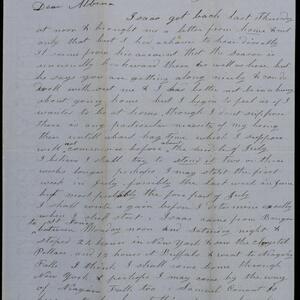 Dear Albina
Isaac got back last Thursday
at noon & brought me a letter from home & not
only that but I had a chance to hear directly
it seems from his account that the season is
unusually backward there as well as here but
he says you are getting along nicely & can do
well without me & I had better not be in a hurry
about going home but I begin to feel as if I
wanted to be at home, though I don't suppose
there is any particular necessity of my being
there until about hay time which I suppose
will not commence before the middle of July
I believe I shall try to stand it two or three
weeks longer perhaps I may start the first
week in July possibly the last week in June
but most probably the fore part of July
I shall write again before I do know exactly
when I shall start. Isaac came from Bangor
to St.
between Monday noon and Saturday night &
stoped 24 hours in New York to see the Crystal
Palace and 12 hours at Buffalo & went to Niagara
Falls I think I shall come home through
New York & perhaps I may come by the way
of Niagara Falls too. Samuel Conant to